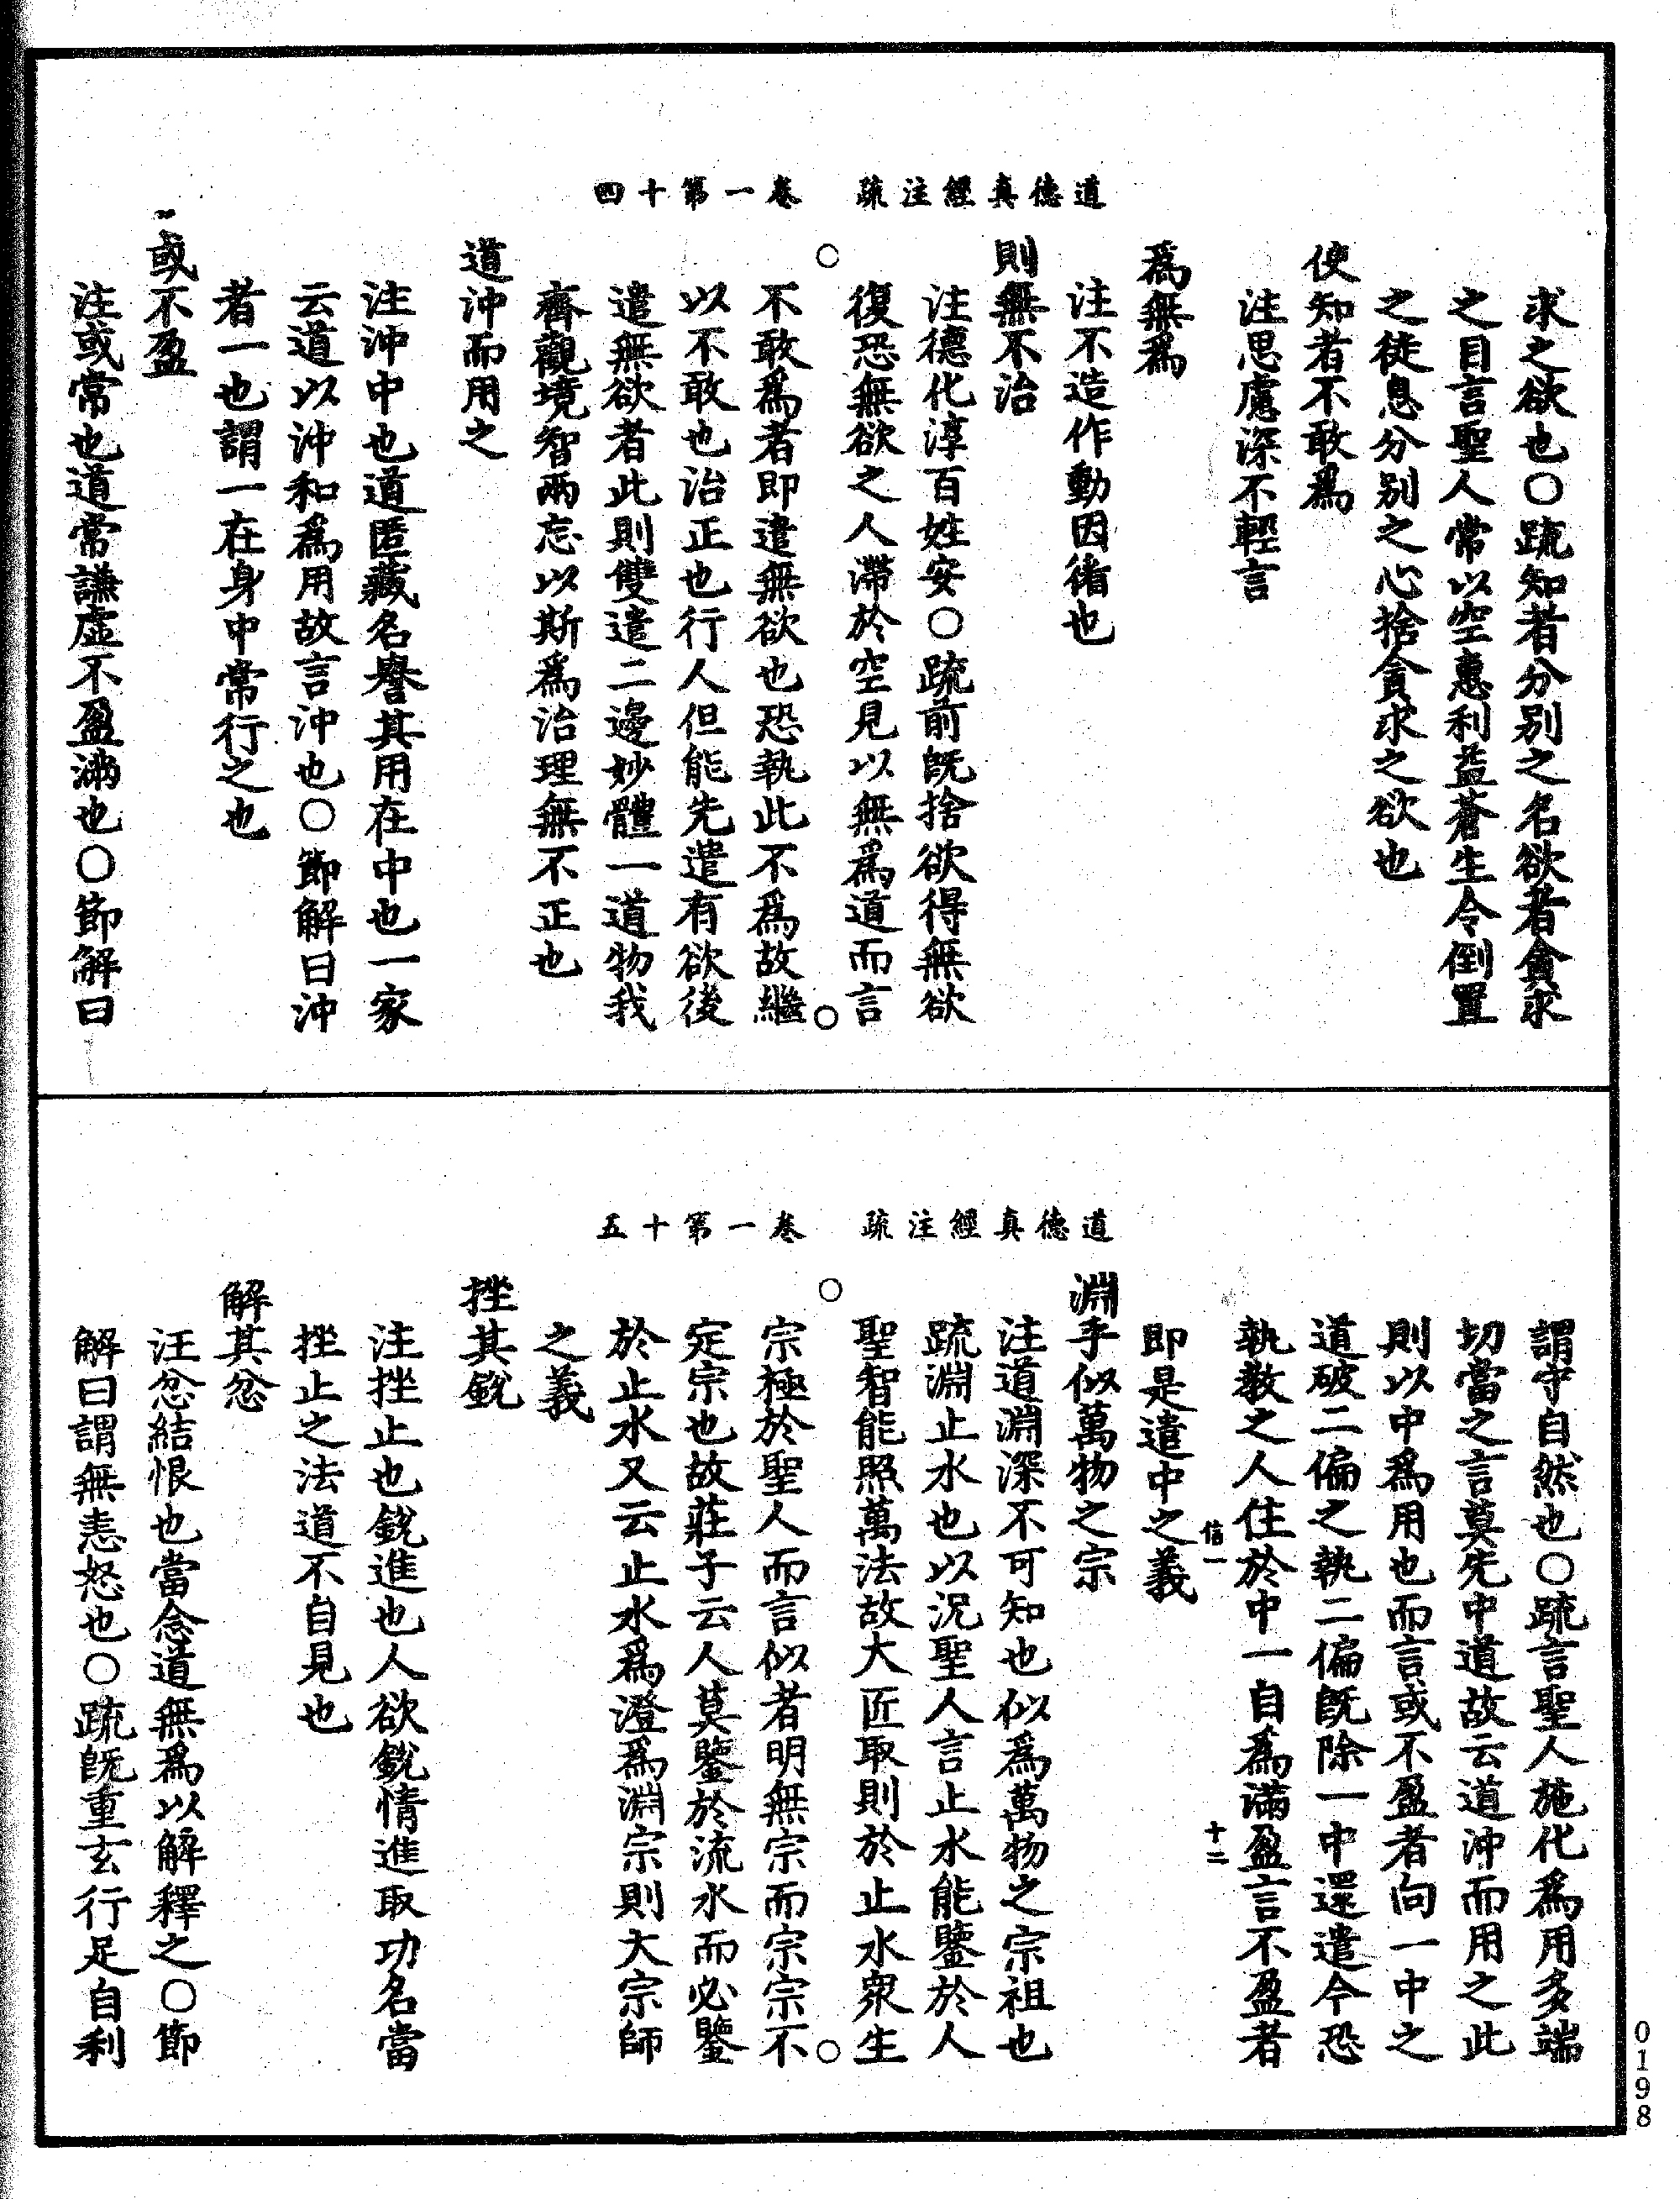 道德真經注疏　卷一第十四
求之欲也○疏知者分别之名欲者貪求
之目言聖人常以空惠利益蒼生令倒置
之徒息分别之心捨貪求之欲也
使知者不敢爲
注思慮深不輕言
爲無爲
注不造作動因循也
則無不治
注德化淳百姓安○疏前旣捨欲得無欲
復恐無欲之人滯於空見以無爲道而言
不敢爲者即遣無欲也恐執此不爲故繼
以不敢也治正也行人但能先遣有欲後
遣無欲者此則雙遣二邊妙體一道物我
齊觀境智兩忘以斯爲治理無不正也
道沖而用之
注沖中也道匿藏名譽其用在中也一家
云道以沖和爲用故言沖也○節解曰沖
者一也謂一在身中常行之也
或不盈
注或常也道常謙虛不盈滿也○節解曰
道德真經注疏　卷一第十五
謂守自然也○疏言聖人施化爲用多端
切當之言莫先中道故云道沖而用之此
則以中爲用也而言或不盈者向一中之
道破二偏之執二偏旣除一中還遣今恐
執教之人住於中一自爲滿盈言不盈者
信一　十二
即是遣中之義
淵乎似萬物之宗
注道淵深不可知也似爲萬物之宗祖也
疏淵止水也以況聖人言止水能鑒於人
聖智能照萬法故大匠取則於止水衆生
宗極於聖人而言似者明無宗而宗宗不
定宗也故莊子云人莫鑒於流水而必鑒
於止水又云止水爲澄爲淵宗則大宗師
之義
挫其銳
注挫止也銳進也人欲銳情進取功名當
挫止之法道不自見也
解其忿
汪忿結恨也當念道無爲以解釋之○節
解曰謂無恚怒也○疏旣重玄行足自利
0198